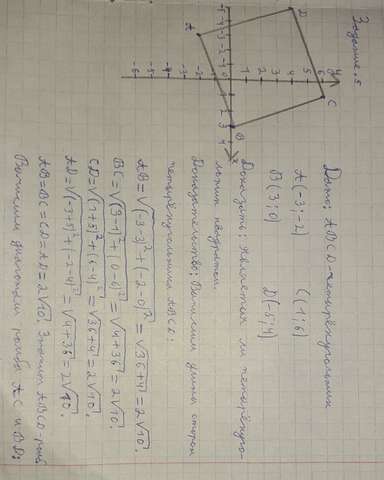 Задание 5
y
x
A
B
C
D
Дано: ABCD-четырёхугольник
A(-3;-2) C(1;6)
B(3;0) D(-5;4)
Доказать: Является ли четырёхуго-
льник квадратом.
Доказательство: Вычислим длины сторон
четырёхугольника ABCD:
AB=√(3-3)²+(-2-0)²=√36+4=2√10;
BC=√(3-1)²+(0-6)²=√4+36=2√10;
CD=√(1+5)²+(6-4)²=√36+4=2√10;
AD=√(-3+5)²+(-2-4)²=√4+36=2√10;
AB=BC=CD=AD=2√10; Значит ABCD-ромб
Вычислим диагонали ромба AC и BD: